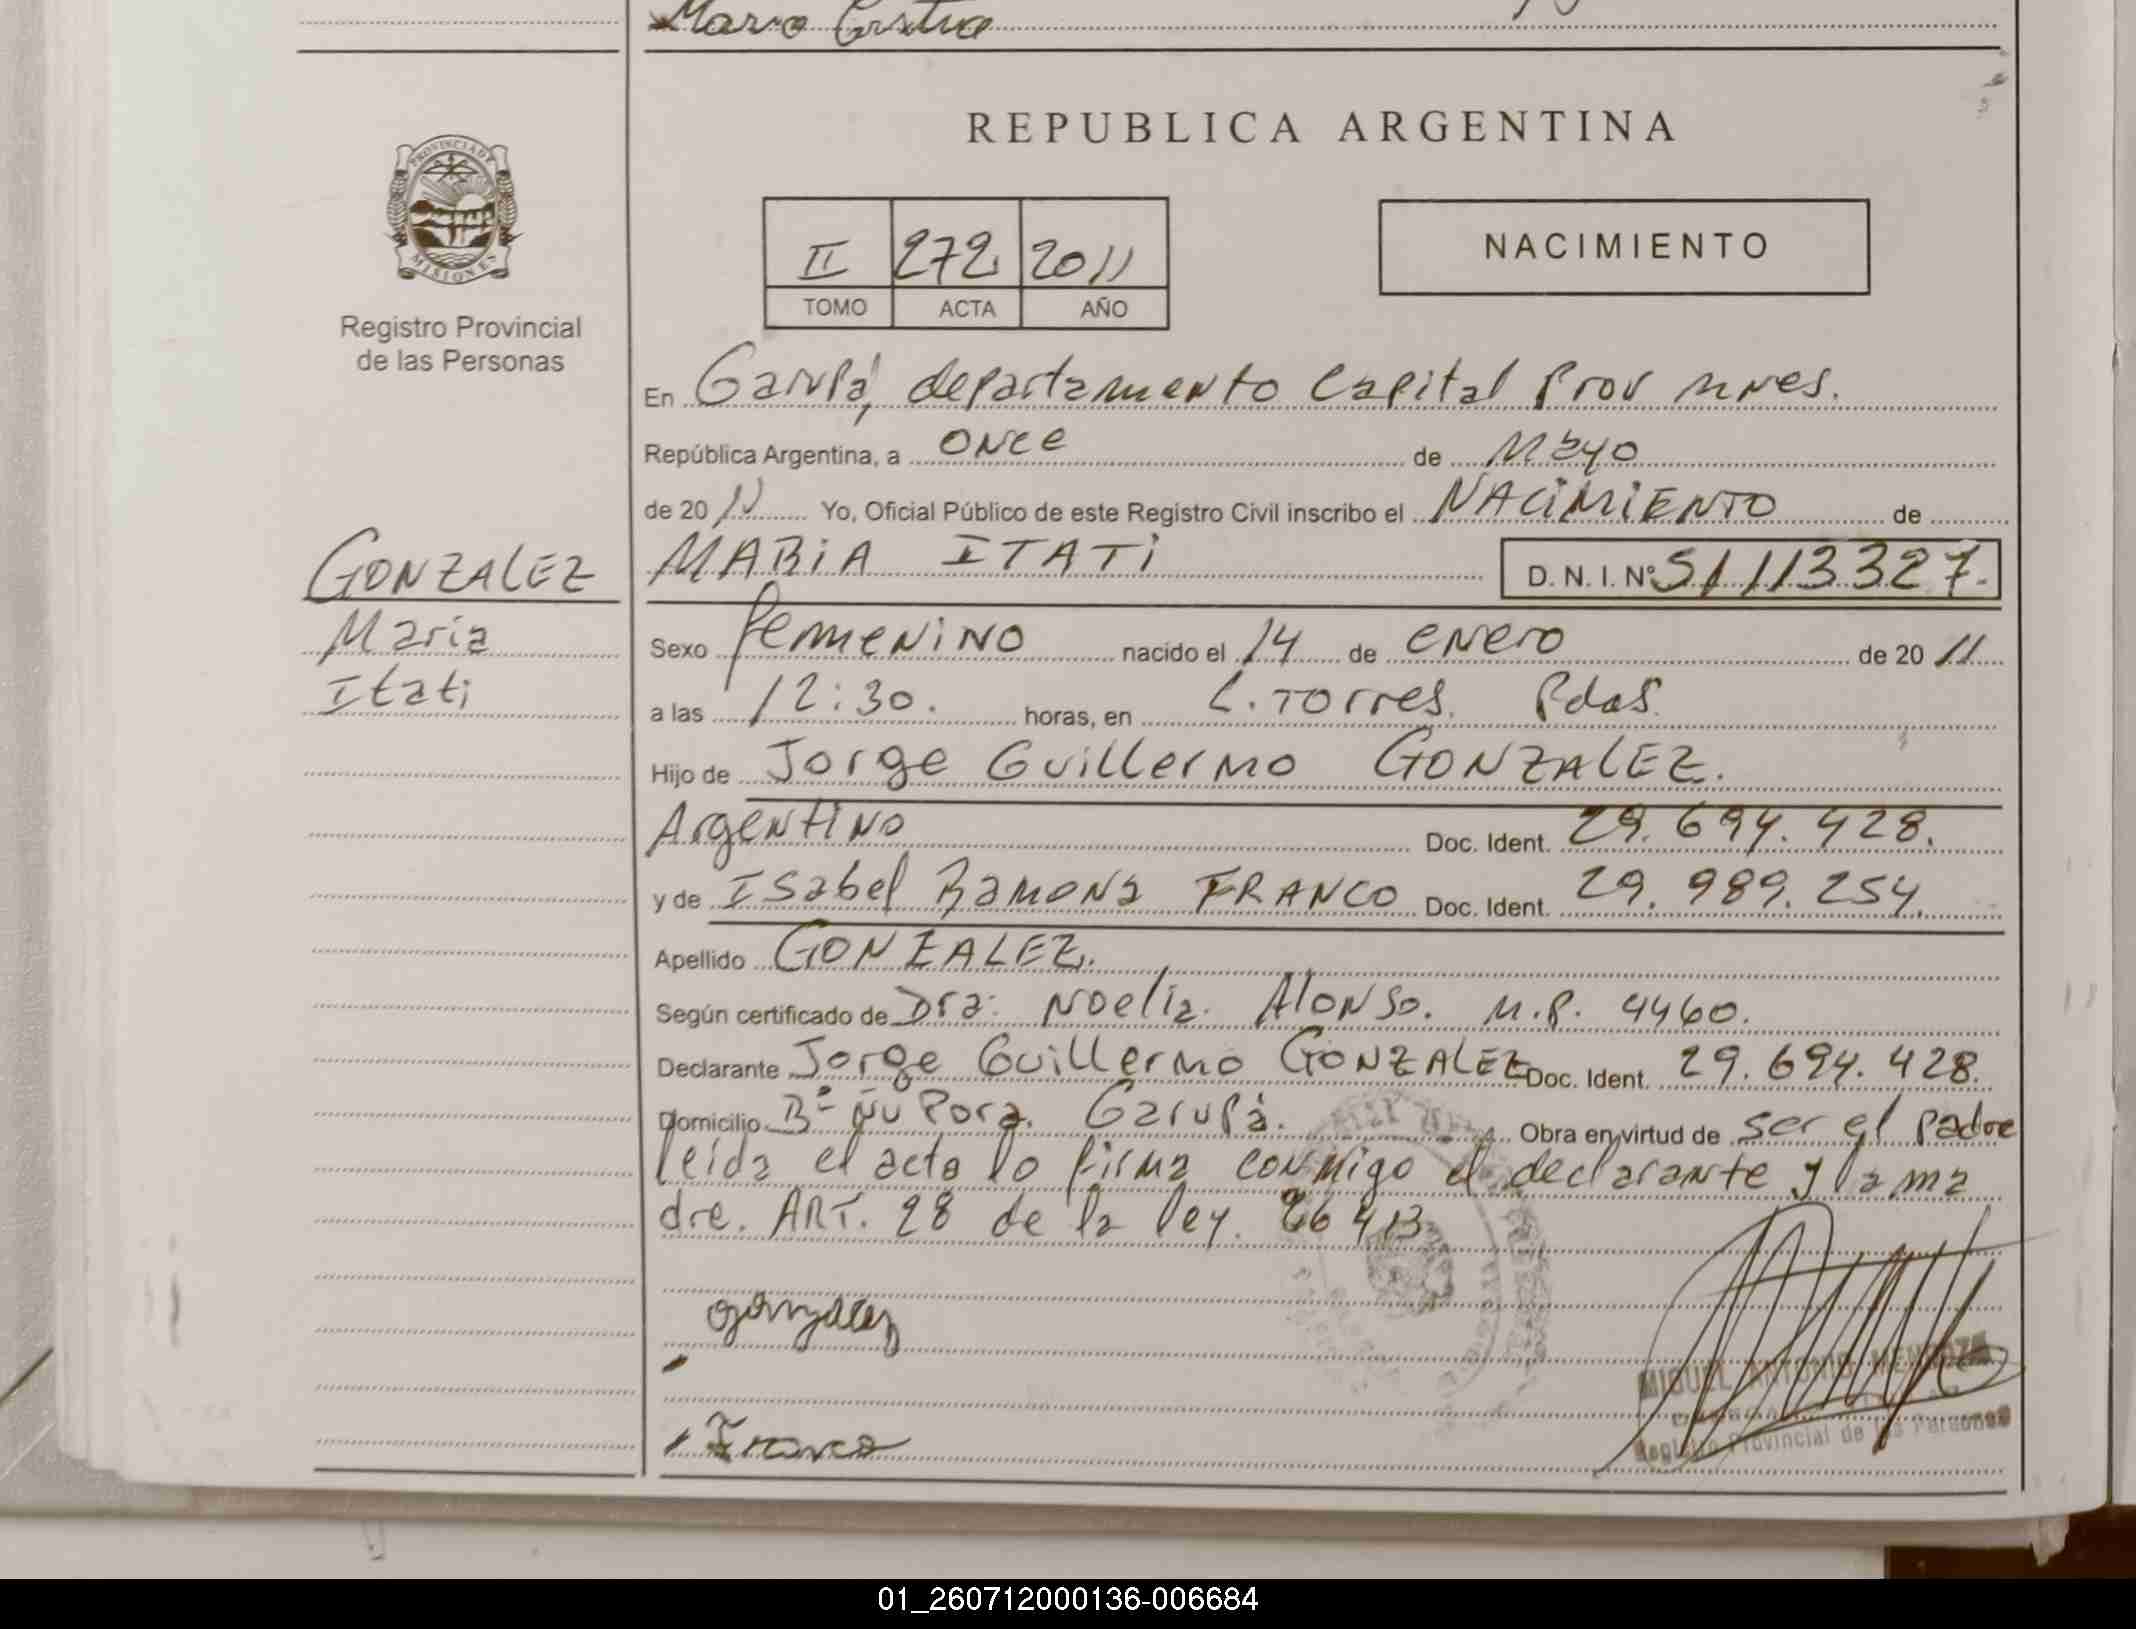 Mario Cristina
REPUBLICA ARGENTINA
PROVINCIA DE
MISIONES
Registro Provincial
de las Personas
II 272 2011
TOMO ACTA AÑO
NACIMIENTO
En Garupá, departamento Capital Prov mnes.
República Argentina, a once de Mayo
de 20 11 Yo, Oficial Público de este Registro Civil inscribo el NACIMIENTO de
GONZALEZ
Maria
Itati
MARIA ITATI D. N. I. Nº 51113327.
Sexo femenino nacido el 14 de enero de 20 11
a las 12:30. horas, en L. Torres. Pdas.
Hijo de Jorge Guillermo GONZALEZ.
Argentino Doc. Ident. 29.694.428.
y de Isabel Ramona FRANCO Doc. Ident. 29.989.254.
Apellido GONZALEZ.
Según certificado de Dra: Noelia. Alonso. M.P. 4460.
Declarante Jorge Guillermo GONZALEZ Doc. Ident. 29.694.428.
Domicilio Bº Ñu Pora. Garupá. Obra en virtud de ser el padre
leida el acta lo firma conmigo el declarante y la ma
dre. ART. 28 de la ley. 26413
gonzalez
Franco
MIGUEL ANTONIO MENDOZA
Registro Provincial de las Personas
01_260712000136-006684